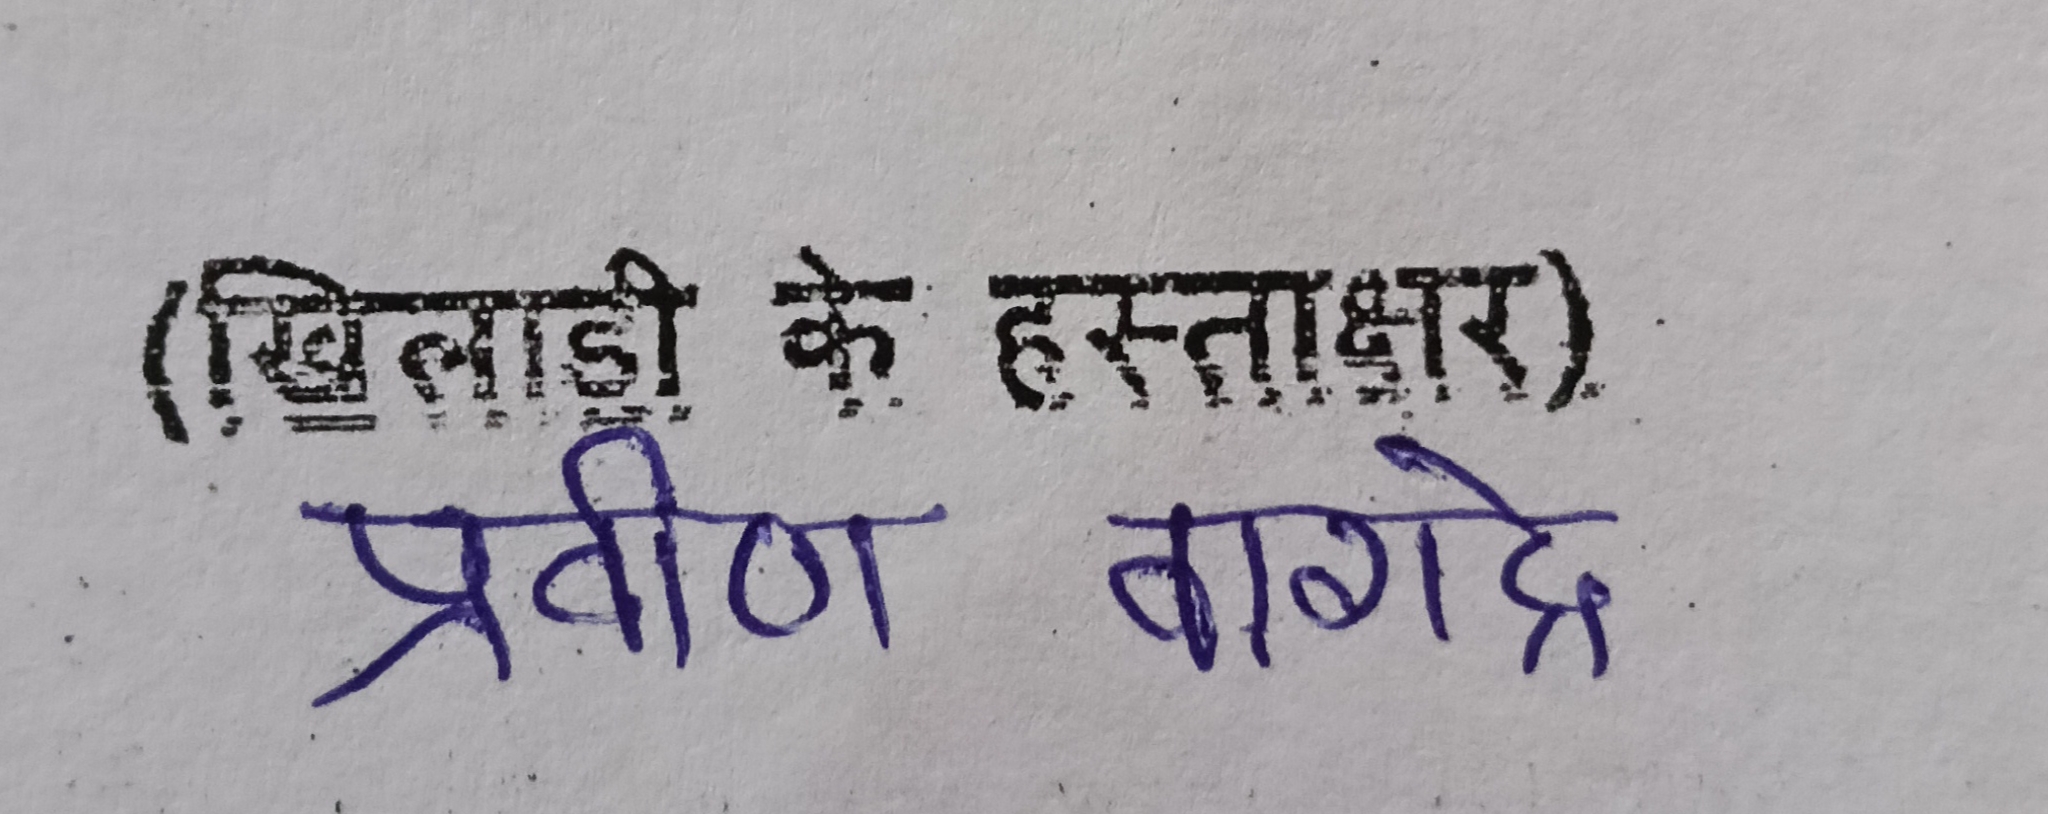 (खिलाडी के हस्ताक्षर)
प्रवीण वागद्रे